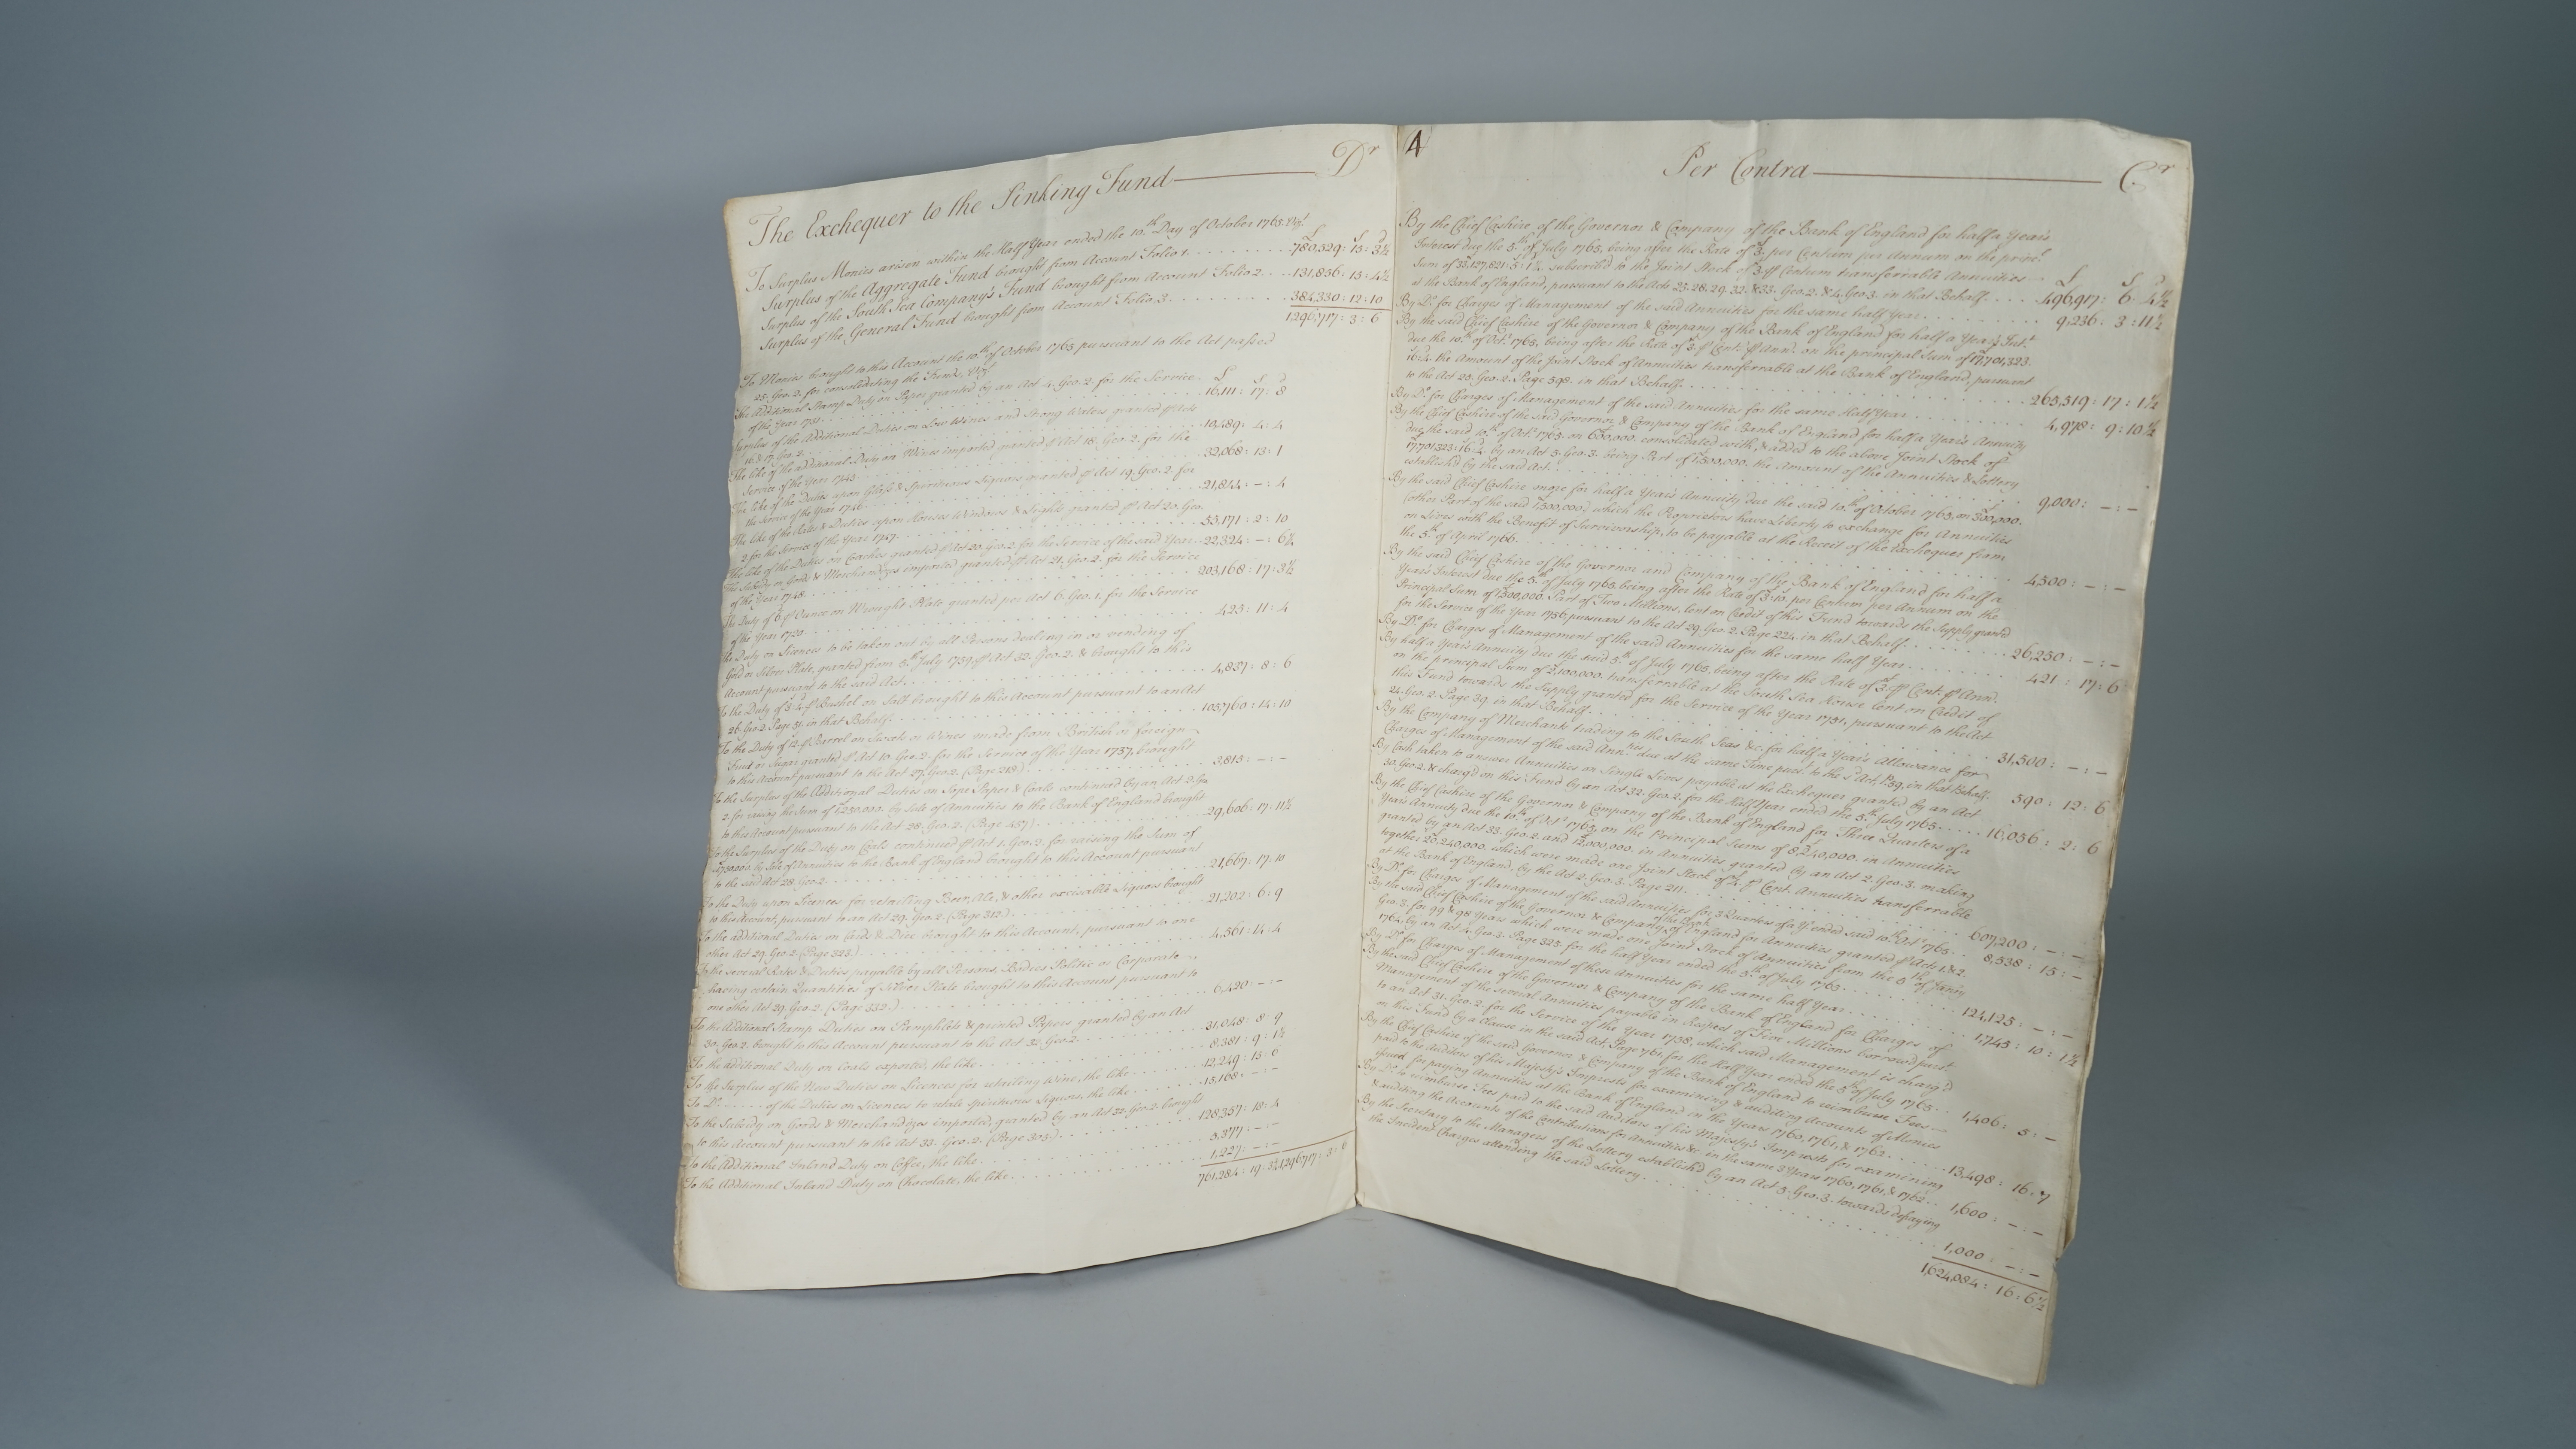 The Exchequer to the Sinking Fund — Dr
To Surplus Monies arisen within the Half Year ended the 10th Day of October 1765. Vizt
£ S d
Surplus of the Aggregate Fund brought from Account Folio 1. 780,529 : 15 : 3½
Surplus of the South Sea Company's Fund brought from Account Folio 2. 131,856 : 15 :
Surplus of the General Fund brought from Account Folio 3. 384,330 : 12 : 10
1,296,717 : 3 : 6
To Monies brought to this Account the 10th of October 1765 pursuant to the Act passed
25. Geo. 2. for consolidating the Funds, Vizt
£ S d
The Additional Stamp Duty on Paper granted by an Act 4. Geo. 2. for the Service
of the Year 1731 16,111 : 17 : 8
Surplus of the Additional Duties on Low Wines and Strong Waters granted pr Acts
16 & 17. Geo. 2. 10,489 : 4 : 4
The like of the additional Duty on Wines imported granted pr Act 18. Geo. 2. for the
Service of the Year 1745 32,068 : 13 : 1
The like of the Duties upon Glass & Spirituous Liquors granted pr Act 19. Geo. 2. for
the Service of the Year 1746 21,844 : – : 4
The like of the Rates & Duties upon Houses Windows & Lights granted pr Act 20. Geo.
2. for the Service of the Year 1747 53,171 : 2 : 10
The like of the Duties on Coaches granted pr Act 20. Geo. 2. for the Service of the said Year 22,324 : – :
The Subsidy on Goods & Merchandizes imported granted pr Act 21. Geo. 2. for the Service
of the Year 1748 203,168 : 17 : 3½
The Duty of 6d pr Ounce on Wrought Plate granted per Act 6. Geo. 1. for the Service
of the Year 1720 423 : 11 : 4
The Duty on Licences to be taken out by all Persons dealing in or vending of
Gold or Silver Plate, granted from 5th July 1759 pr Act 32. Geo. 2. & brought to this
Account pursuant to the said Act 4,837 : 8 : 6
To the Duty of 3s:4d pr Bushel on Salt brought to this Account pursuant to an Act
26. Geo. 2. Page 31. in that Behalf 105,760 : 14 : 10
To the Duty of 12s pr Barrel on Sweets or Wines made from British or foreign
Fruit or Sugar granted pr Act 10. Geo. 2. for the Service of the Year 1737, brought
to this Account pursuant to the Act 27. Geo. 2. (Page 218) 3,813 : – : –
To the Surplus of the Additional Duties on Sope Paper & Coals continued by an Act
2. for raising the Sum of £1,250,000. by Sale of Annuities to the Bank of England brought
to this Account pursuant to the Act 28. Geo. 2. (Page 457) 29,606 : 17 :
To the Surplus of the Duty on Coals continued pr Act 1. Geo. 2. for raising the Sum of
£1,750,000. by Sale of Annuities to the Bank of England brought to this Account pursuant
to the said Act 28. Geo. 2. 21,667 : 17 : 10
To the Duty upon Licences for retailing Beer, Ale, & other exciseable Liquors brought
to this Account, pursuant to an Act 29. Geo. 2. (Page 312) 21,202 : 6 : 9
To the additional Duties on Cards & Dice brought to this Account, pursuant to one
other Act 29. Geo. 2. (Page 323) 4,561 : 14 : 4
To the several Rates & Duties payable by all Persons, Bodies Politic or Corporate
having certain Quantities of Silver Plate brought to this Account pursuant to
one other Act 29. Geo. 2. (Page 332) 6,420 : – : –
To the Additional Stamp Duties on Pamphlets & printed Papers granted by an Act
30. Geo. 2. brought to this Account pursuant to the Act 32. Geo. 2. 31,048 : 8 : 9
To the additional Duty on Coals exported, the like 8,381 : 9 : 1½
To the Surplus of the New Duties on Licences for retailing Wine, the like 12,249 : 15 : 6
To Do of the Duties on Licences to retale Spirituous Liquors, the like 15,168 : – : –
To the Subsidy on Goods & Merchandizes imported, granted by an Act 32. Geo. 2. brought
to this Account pursuant to the Act 33. Geo. 2. (Page 303) 128,357 : 18 : 4
To the Additional Inland Duty on Coffee, the like 5,377 : – : –
To the Additional Inland Duty on Chocolate, the like 1,227 : – : –
761,284 : 19 : 1,296,717 : 3 : 6
4 Per Contra — Cr
By the Chief Cashire of the Governor & Company of the Bank of England for half a Year's
Interest due the 5th of July 1765, being after the Rate of £3. per Centum per Annum on the princl
Sum of 33,127,821 : 5 : 1¼, subscribed to the Joint Stock of 3 pr Centum transferrable Annuities £ S d
at the Bank of England, pursuant to the Acts 25. 28. 29. 32. & 33. Geo. 2. & 4. Geo. 3. in that Behalf 496,917 : 6 : 4½
By Do for Charges of Management of the said Annuities for the same half Year 9,236 : 3 : 11½
By the said Chief Cashire of the Governor & Company of the Bank of England for half a Year's Intt
due the 10th of Octr 1765, being after the Rate of £3. pr Cent. pr Ann. on the principal Sum of £17,701,323.
16:4. the Amount of the Joint Stock of Annuities transferrable at the Bank of England, pursuant
to the Act 25. Geo. 2. Page 598. in that Behalf 265,519 : 17 : 1½
By Do for Charges of Management of the said Annuities for the same Half Year 4,978 : 9 : 10½
By the Chief Cashire of the said Governor & Company of the Bank of England for half a Year's Annuity
due the said 10th of Octr 1765. on £600,000. consolidated with, & added to the above Joint Stock of
£17,701,323:16:4. by an Act 5. Geo. 3. being Part of £1,500,000. the Amount of the Annuities & Lottery
establish'd by the said Act 9,000 : – : –
By the said Chief Cashire more for half a Year's Annuity due the said 10th of October 1765, on £300,000.
(other Part of the said £1,500,000) which the Proprietors have Liberty to exchange for Annuities
on Lives with the Benefit of Survivorship, to be payable at the Receit of the Exchequer from
the 5th of April 1766. 4,500 : – : –
By the said Chief Cashire of the Governor and Company of the Bank of England for half a
Year's Interest due the 5th of July 1765, being after the Rate of £3:10. per Centum per Annum on the
Principal Sum of £1,500,000. Part of Two Millions, lent on Credit of this Fund towards the Supply granted
for the Service of the Year 1756, pursuant to the Act 29. Geo. 2. Page 224. in that Behalf 26,250 : – : –
By Do for Charges of Management of the said Annuities for the same half Year 421 : 17 : 6
By half a Year's Annuity due the said 5th of July 1765, being after the Rate of £3. pr Cent. pr Ann.
on the principal Sum of £2,100,000. transferrable at the South Sea House lent on Credit of
this Fund towards the Supply granted for the Service of the Year 1751, pursuant to the Act
24. Geo. 2. Page 39. in that Behalf 31,500 : – : –
By the Company of Merchants trading to the South Seas &c. for half a Year's Allowance for
Charges of Management of the said Annties due at the same Time purst to the sd Act, Pa. 39. in that Behalf 590 : 12 : 6
By Cash taken to answer Annuities on Single Lives payable at the Exchequer granted by an Act
30. Geo. 2. & charg'd on this Fund by an Act 32. Geo. 2. for the Half Year ended the 5th July 1765 16,056 : 2 : 6
By the Chief Cashire of the Governor & Company of the Bank of England for Three Quarters of a
Year's Annuity due the 10th of Octr 1765, on the Principal Sums of 8,240,000. in Annuities
granted by an Act 33. Geo. 2. and 12,000,000. in Annuities granted by an Act 2. Geo. 3. making
together 20,240,000. which were made one Joint Stock of £4. pr Cent. Annuities transferrable
at the Bank of England, by the Act 2. Geo. 3. Page 211. 607,200 : – : –
By Do for Charges of Management of the said Annuities for 3 Quarters of a Yr ended said 10th Octr 1765 8,538 : 15 : –
By the said Chief Cashire of the Governor & Company of the Bank of England for Annuities granted pr Acts 1. & 2.
Geo. 3. for 99 & 98 Years which were made one Joint Stock of Annuities from the 5th of Janry
1764, by an Act 4. Geo. 3. Page 325. for the half Year ended the 5th of July 1765 124,125 : – : –
By Do for Charges of Management of these Annuities for the same half Year 1,745 : 10 :
By the said Chief Cashire of the Governor & Company of the Bank of England for Charges of
Management of the several Annuities payable in Respect of Five Millions borrowed purst
to an Act 31. Geo. 2. for the Service of the Year 1758, which said Management is charg'd
on this Fund by a Clause in the said Act, Page 761. for the Half Year ended the 5th of July 1765 1,406 : 5 : –
By the Chief Cashire of the said Governor & Company of the Bank of England to reimburse Fees
paid to the Auditors of his Majesty's Imprests for examining & auditing Accounts of Monies
Issued for paying Annuities at the Bank of England in the Years 1760, 1761, & 1762 13,498 : 16 : 7
By Do to reimburse Fees paid to the said Auditors of his Majesty's Imprests for examining
& auditing the Accounts of the Contributions for Annuities &c. in the same 3 Years 1760, 1761, & 1762 1,600 : – : –
By the Secretary to the Managers of the Lottery establish'd by an Act 5. Geo. 3. towards defraying
the Incident Charges attending the said Lottery 1,000 : – : –
1,624,084 : 16 : 6½